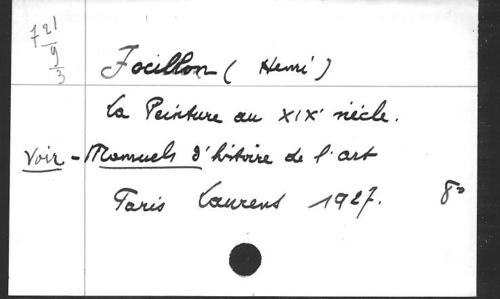 721
9
3
Focillon (Henri)
La Peinture au XIXe siècle.
Voir - Manuels d'histoire de l'art
Paris Laurens 1927. 8°